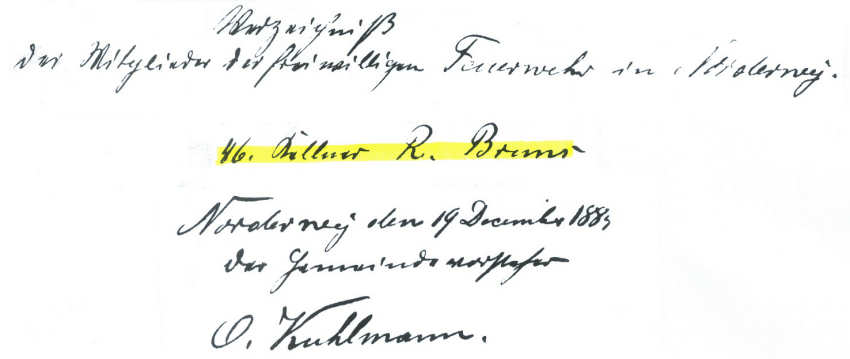 Verzeichniß
der Mitglieder der freiwilligen Feuerwehr in Norderney.
46. Kellner R. Bruns
Norderney den 19 December
Der Gemeindevorsteher
O. Kuhlmann.